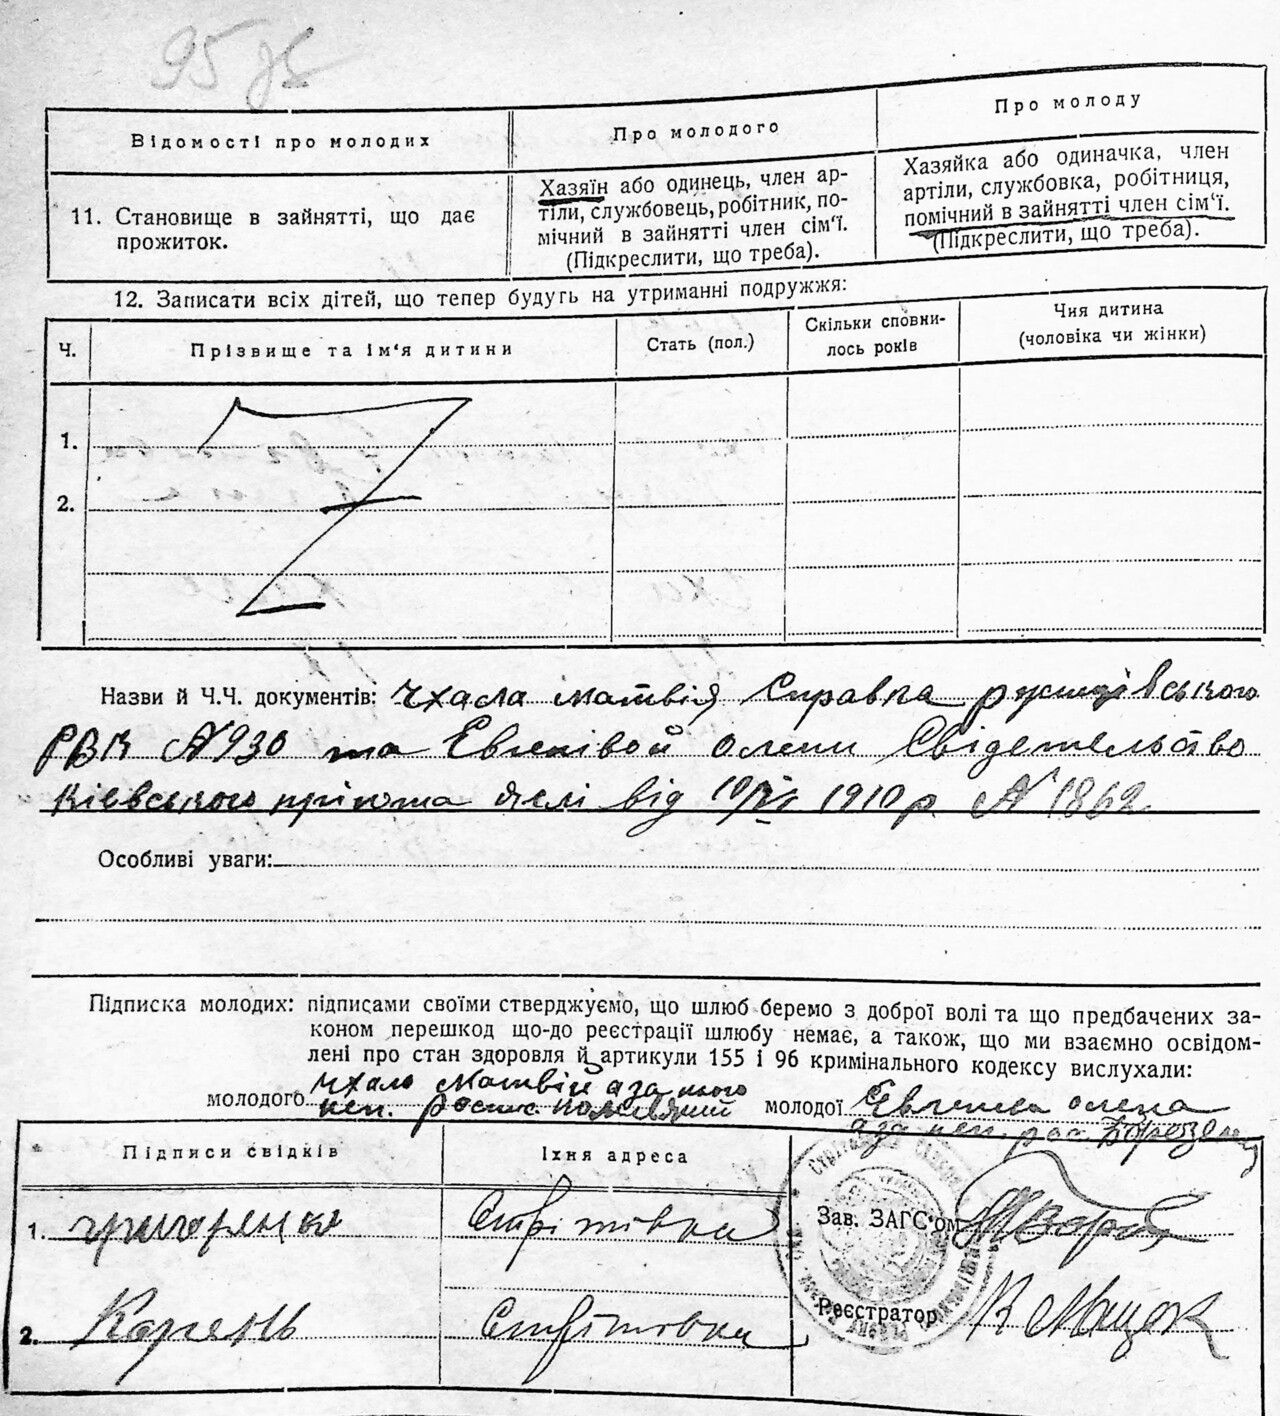 95
Відомості про молодих
Про молодого
Про молоду
11. Становище в зайнятті, що дає
прожиток.
Хазяїн або одинець, член ар-
тіли, службовець, робітник, по-
мічний в зайнятті член сім'ї.
(Підкреслити, що треба).
Хазяйка або одиначка, член
артіли, службовка, робітниця,
помічний в зайнятті член сім'ї.
(Підкреслити, що треба).
12. Записати всіх дітей, що тепер будуть на утриманні подружжя:
Ч.
Прізвище та ім'я дитини
Стать (пол.)
Скільки сповни-
лось років
Чия дитина
(чоловіка чи жінки)
1.
2.
Назви й Ч.Ч. документів: Чхала Матвія Справка
РВК № 930 та Евгенівой Олени Свідетельство
Кіевського пріюта від 1910 р. № 1862
Особливі уваги:
Підписка молодих: підписами своїми стверджуємо, що шлюб беремо з доброї волі та що предбачених за-
коном перешкод що-до реєстрації шлюбу немає, а також, що ми взаємно освідом-
лені про стан здоровля й артикули 155 і 96 кримінального кодексу вислухали:
молодого Чхало Матвій а за його
неп. роспис.
молодої Евгенива Олена
а за неп. рос.
Підписи свідків
Їхня адреса
1. Григоренко
Стрітівка
Зав. ЗАГС'ом
2. Корень
Стрітівка
Реєстратор